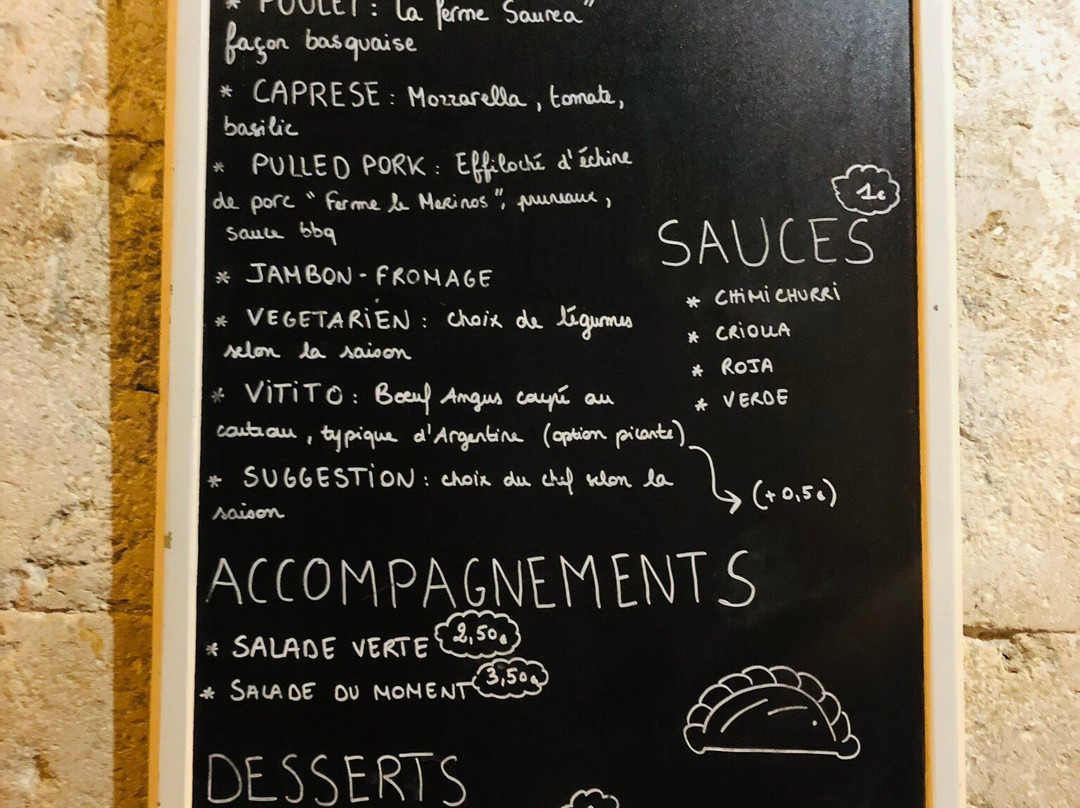 * POULET : la ferme Saurea"
façon basquaise
* CAPRESE : Mozzarella, tomate,
basilic
* PULLED PORK : Effiloché d'échine
de porc "Ferme le Merinos", pruneaux,
sauce bbq
* JAMBON-FROMAGE
* VEGETARIEN : choix de légumes
selon la saison
* VITITO : Boeuf Angus coupé au
couteau, typique d'Argentine (option picante)
(+ 0,5€)
* SUGGESTION : choix du chef selon la
saison
1€
SAUCES
* CHIMICHURRI
* CRIOLLA
* ROJA
* VERDE
ACCOMPAGNEMENTS
* SALADE VERTE 2,50€
* SALADE DU MOMENT 3,50€
DESSERTS